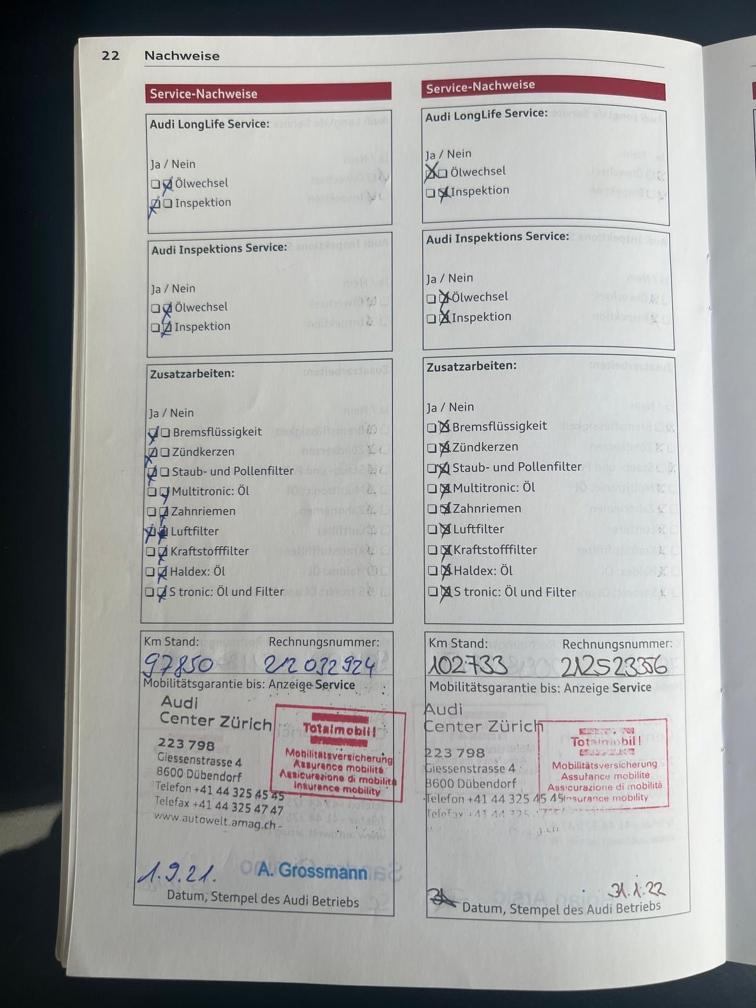 22 Nachweise
Service-Nachweise
Audi LongLife Service:
Ja / Nein
Ölwechsel
Inspektion
Audi Inspektions Service:
Ja / Nein
Ölwechsel
Inspektion
Zusatzarbeiten:
Ja / Nein
Bremsflüssigkeit
Zündkerzen
Staub- und Pollenfilter
Multitronic: Öl
Zahnriemen
Luftfilter
Kraftstofffilter
Haldex: Öl
S tronic: Öl und Filter
Km Stand: Rechnungsnummer:
97850 212032924
Mobilitätsgarantie bis: Anzeige Service
Audi
Center Zürich
223 798
Giessenstrasse 4
8600 Dübendorf
Telefon +41 44 325 45 45
Telefax +41 44 325 47 47
www.autowelt.amag.ch
Totalmobil!
Mobilitätsversicherung
Assurance mobilité
Assicurazione di mobilità
Insurance mobility
1.9.21. A. Grossmann
Datum, Stempel des Audi Betriebs
Service-Nachweise
Audi LongLife Service:
Ja / Nein
Ölwechsel
Inspektion
Audi Inspektions Service:
Ja / Nein
Ölwechsel
Inspektion
Zusatzarbeiten:
Ja / Nein
Bremsflüssigkeit
Zündkerzen
Staub- und Pollenfilter
Multitronic: Öl
Zahnriemen
Luftfilter
Kraftstofffilter
Haldex: Öl
S tronic: Öl und Filter
Km Stand: Rechnungsnummer:
102733 212523356
Mobilitätsgarantie bis: Anzeige Service
Audi
Center Zürich
223 798
Giessenstrasse 4
8600 Dübendorf
Telefon +41 44 325 45 45
Telefax +41 44 325
Totalmobil!
Mobilitätsversicherung
Assurance mobilité
Assicurazione di mobilità
Insurance mobility
31.1.22
Datum, Stempel des Audi Betriebs